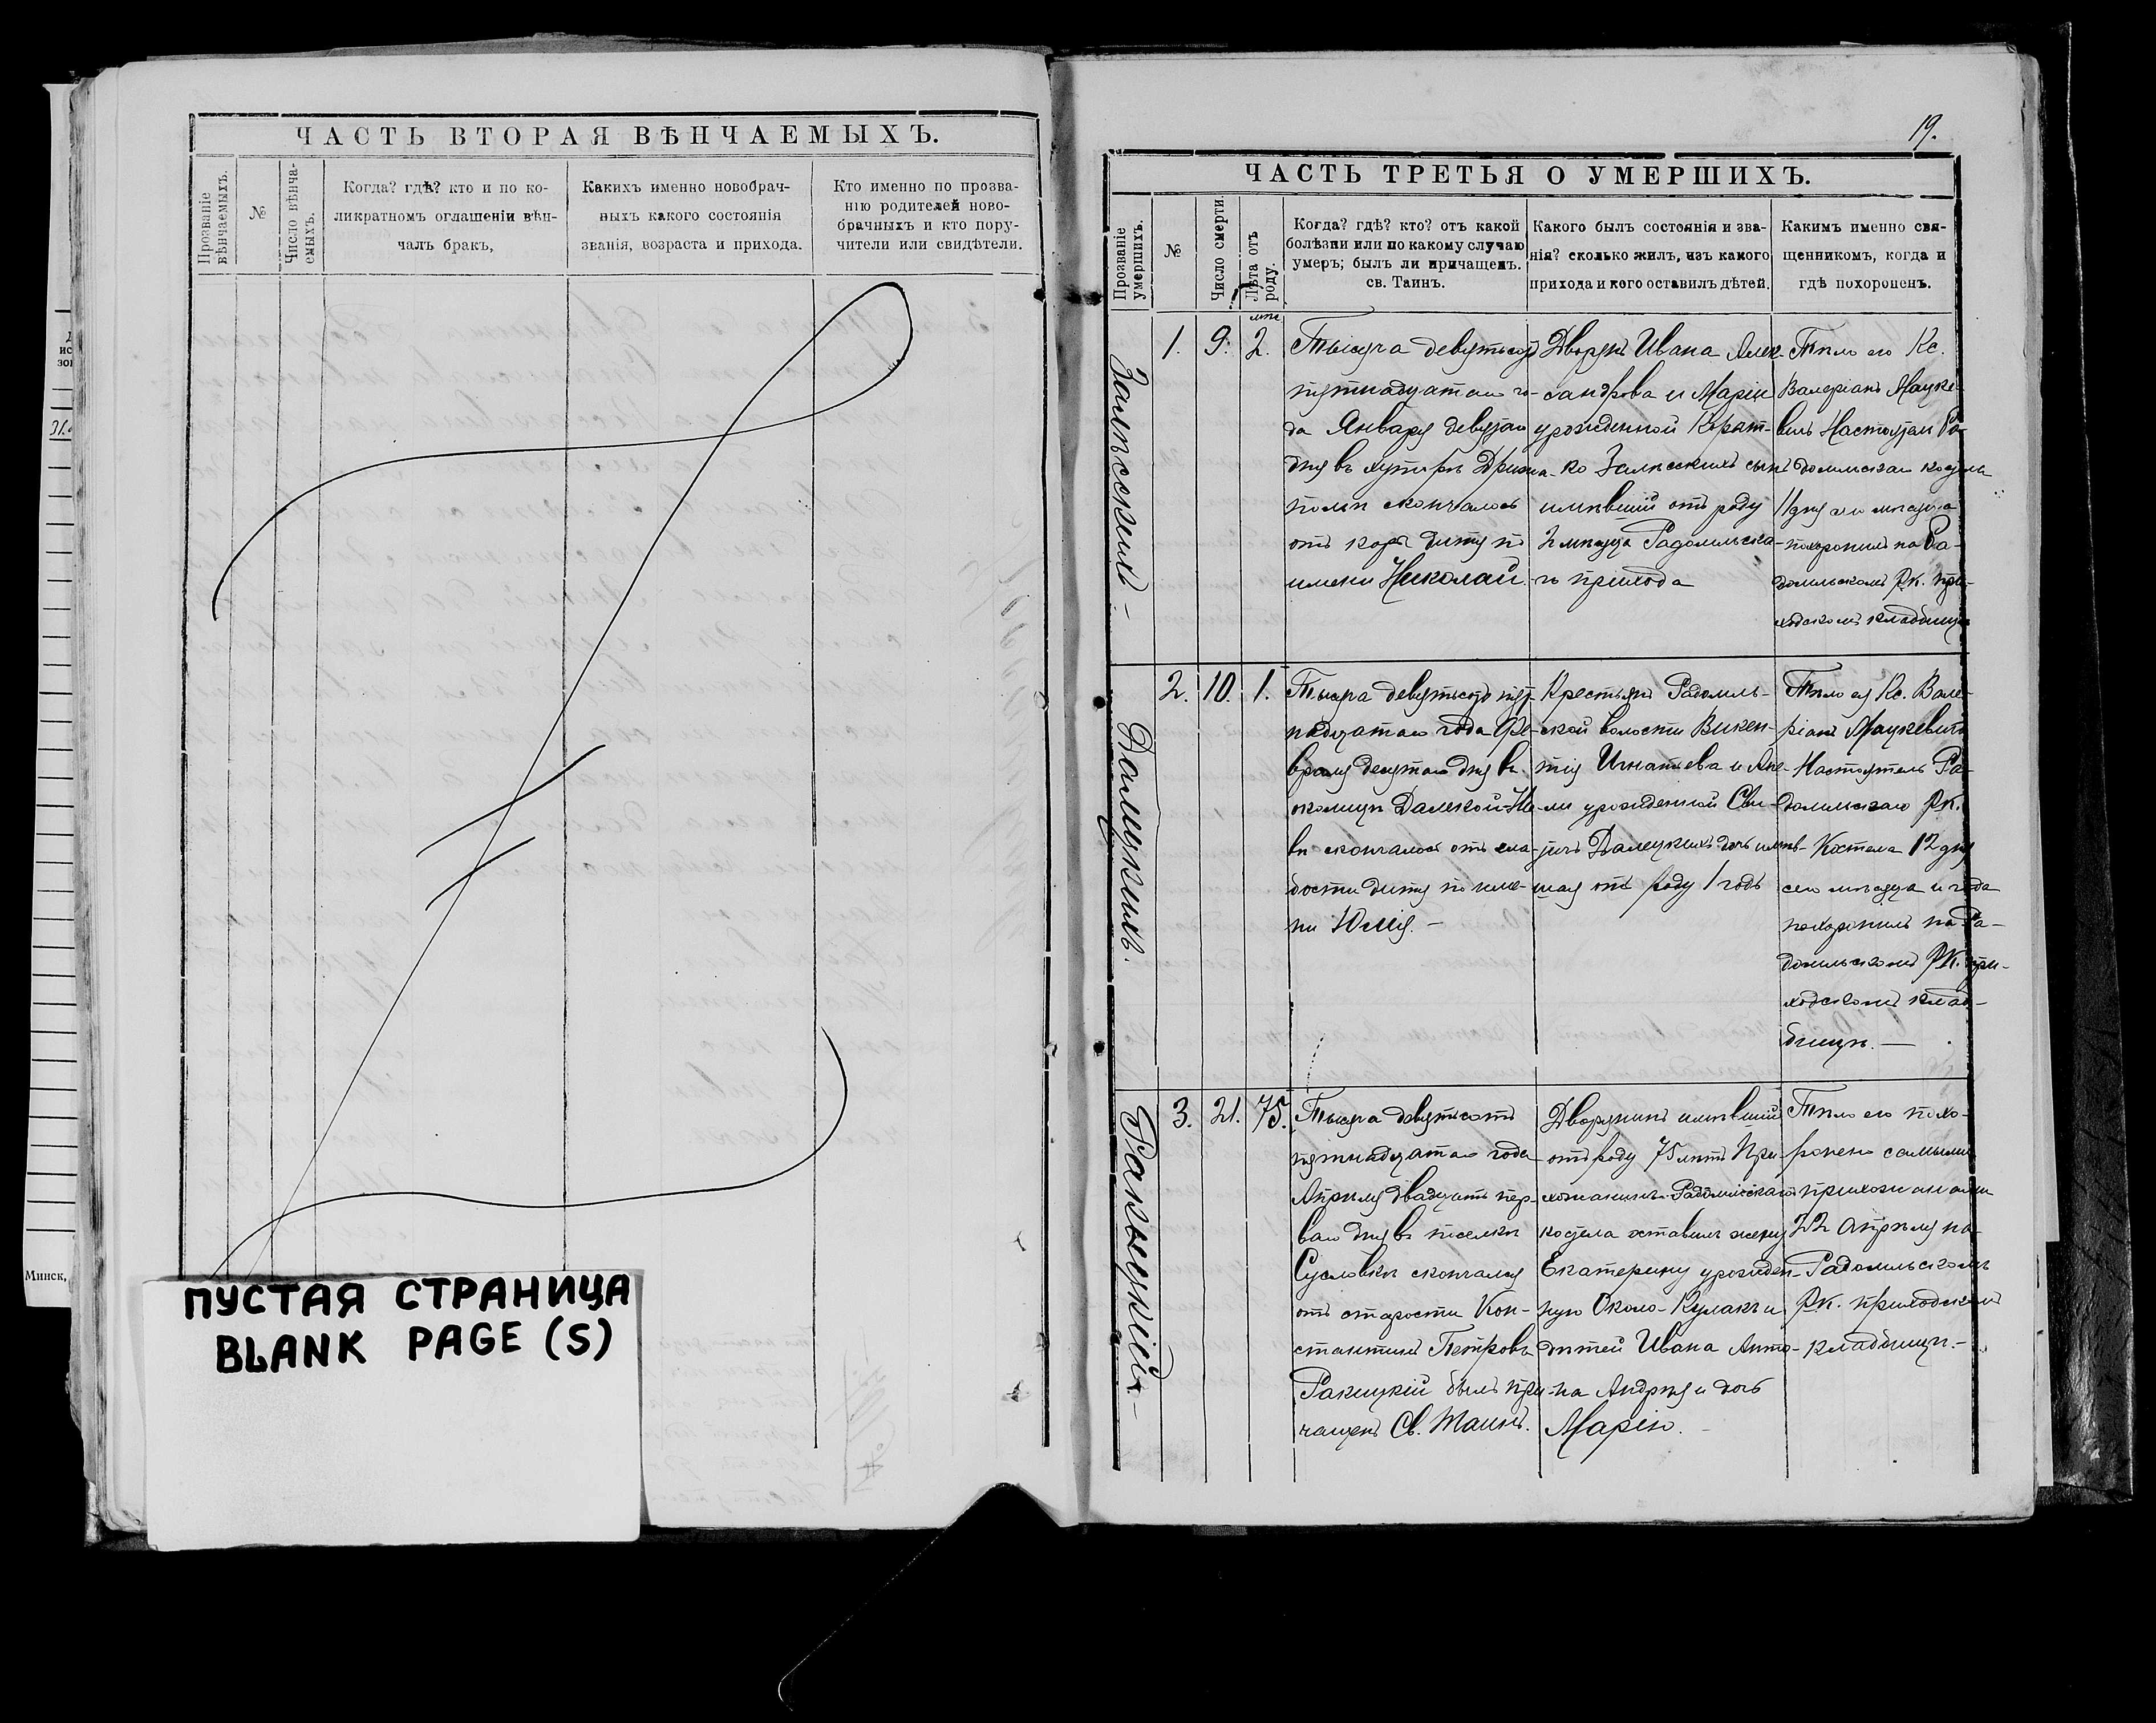 ЧАСТЬ ВТОРАЯ ВѢНЧАЕМЫХЪ.
Прозваніе
вѣнчаемыхъ.
№
Число вѣнча-
емыхъ.
Когда? гдѣ? кто и по ко-
ликратномъ оглашеніи вѣн-
чалъ бракъ,
Какихъ именно новобрач-
ныхъ какого состоянія
званія, возраста и прихода.
Кто именно по прозва-
нію родителей ново-
брачныхъ и кто пору-
чители или свидѣтели.
Минск,
ПУСТАЯ СТРАНИЦА
BLANK PAGE (S)
19.
ЧАСТЬ ТРЕТЬЯ О УМЕРШИХЪ.
Прозваніе
умершихъ.
№
Число смерти.
Лѣта отъ
роду.
Когда? гдѣ? кто? отъ какой
болѣзни или по какому случаю
умеръ; былъ ли причащенъ.
св. Таинъ.
Какого былъ состоянія и зва-
нія? сколько жилъ, изъ какого
прихода и кого оставилъ дѣтей.
Какимъ именно свя-
щенникомъ, когда и
гдѣ похороненъ.
Залѣсскій –
1.
9.
2.
Тысяча девятьсотъ
пятнадцатаго го-
да Января девятаго
дня въ
полѣ скончалось
отъ кори дитя по
имени Николай
Дворянъ Ивана Алек-
сандрова и Маріи
урожденной Крат-
ко Залѣсскихъ сынъ
имѣвшій отъ роду
2 мѣсяца Радомльска-
го прихода
Тѣло его Кс.
Валеріанъ Мацке-
вичъ Настоятель Ра-
домльскаго костела
11 дня сего мѣсяца
похоронилъ на Ра-
домльскомъ Р.К. при-
ходскомъ кладбищѣ
Далецкихъ.
2.
10.
1.
Тысяча девятьсотъ пят-
надцатаго года Фе-
враля десятаго дня въ
околицѣ Далекой-Ни-
вѣ скончалось отъ сла-
бости дитя по име-
ни Юлія. –
Крестьянъ Радомль-
ской волости Викен-
тія Игнатьева и Ане-
ли урожденной
Далецкихъ дочь имѣв-
шая отъ роду 1 годъ
Тѣло ея Кс. Вале-
ріанъ Мацкевичъ
Настоятель Ра-
домльскаго Р.К.
Костела 12 дня
сего мѣсяца и года
похоронилъ на Ра-
домльскомъ Р.К. при-
ходскомъ клад-
бищѣ. –
Ракицкій. –
3.
21.
75.
Тысяча девятьсотъ
пятнадцатаго года
Апрѣля двадцать пер-
ваго дня въ поселкѣ
Сусловкѣ скончался
отъ старости Кон-
стантинъ Петровъ
Ракицкій былъ при-
чащенъ Св. Таинъ.
Дворянинъ имѣвшій
отъ роду 75 лѣтъ При-
хожанинъ Радомльскаго
костела оставилъ жену
Екатерину урожден-
ную Около-Кулакъ и
дѣтей Ивана Анто-
на Андрея и дочь
Марію.
Тѣло его похо-
ронено самыми
прихожанами
22 Апрѣля на
Радомльскомъ
Р.К. приходскомъ
кладбищѣ. –